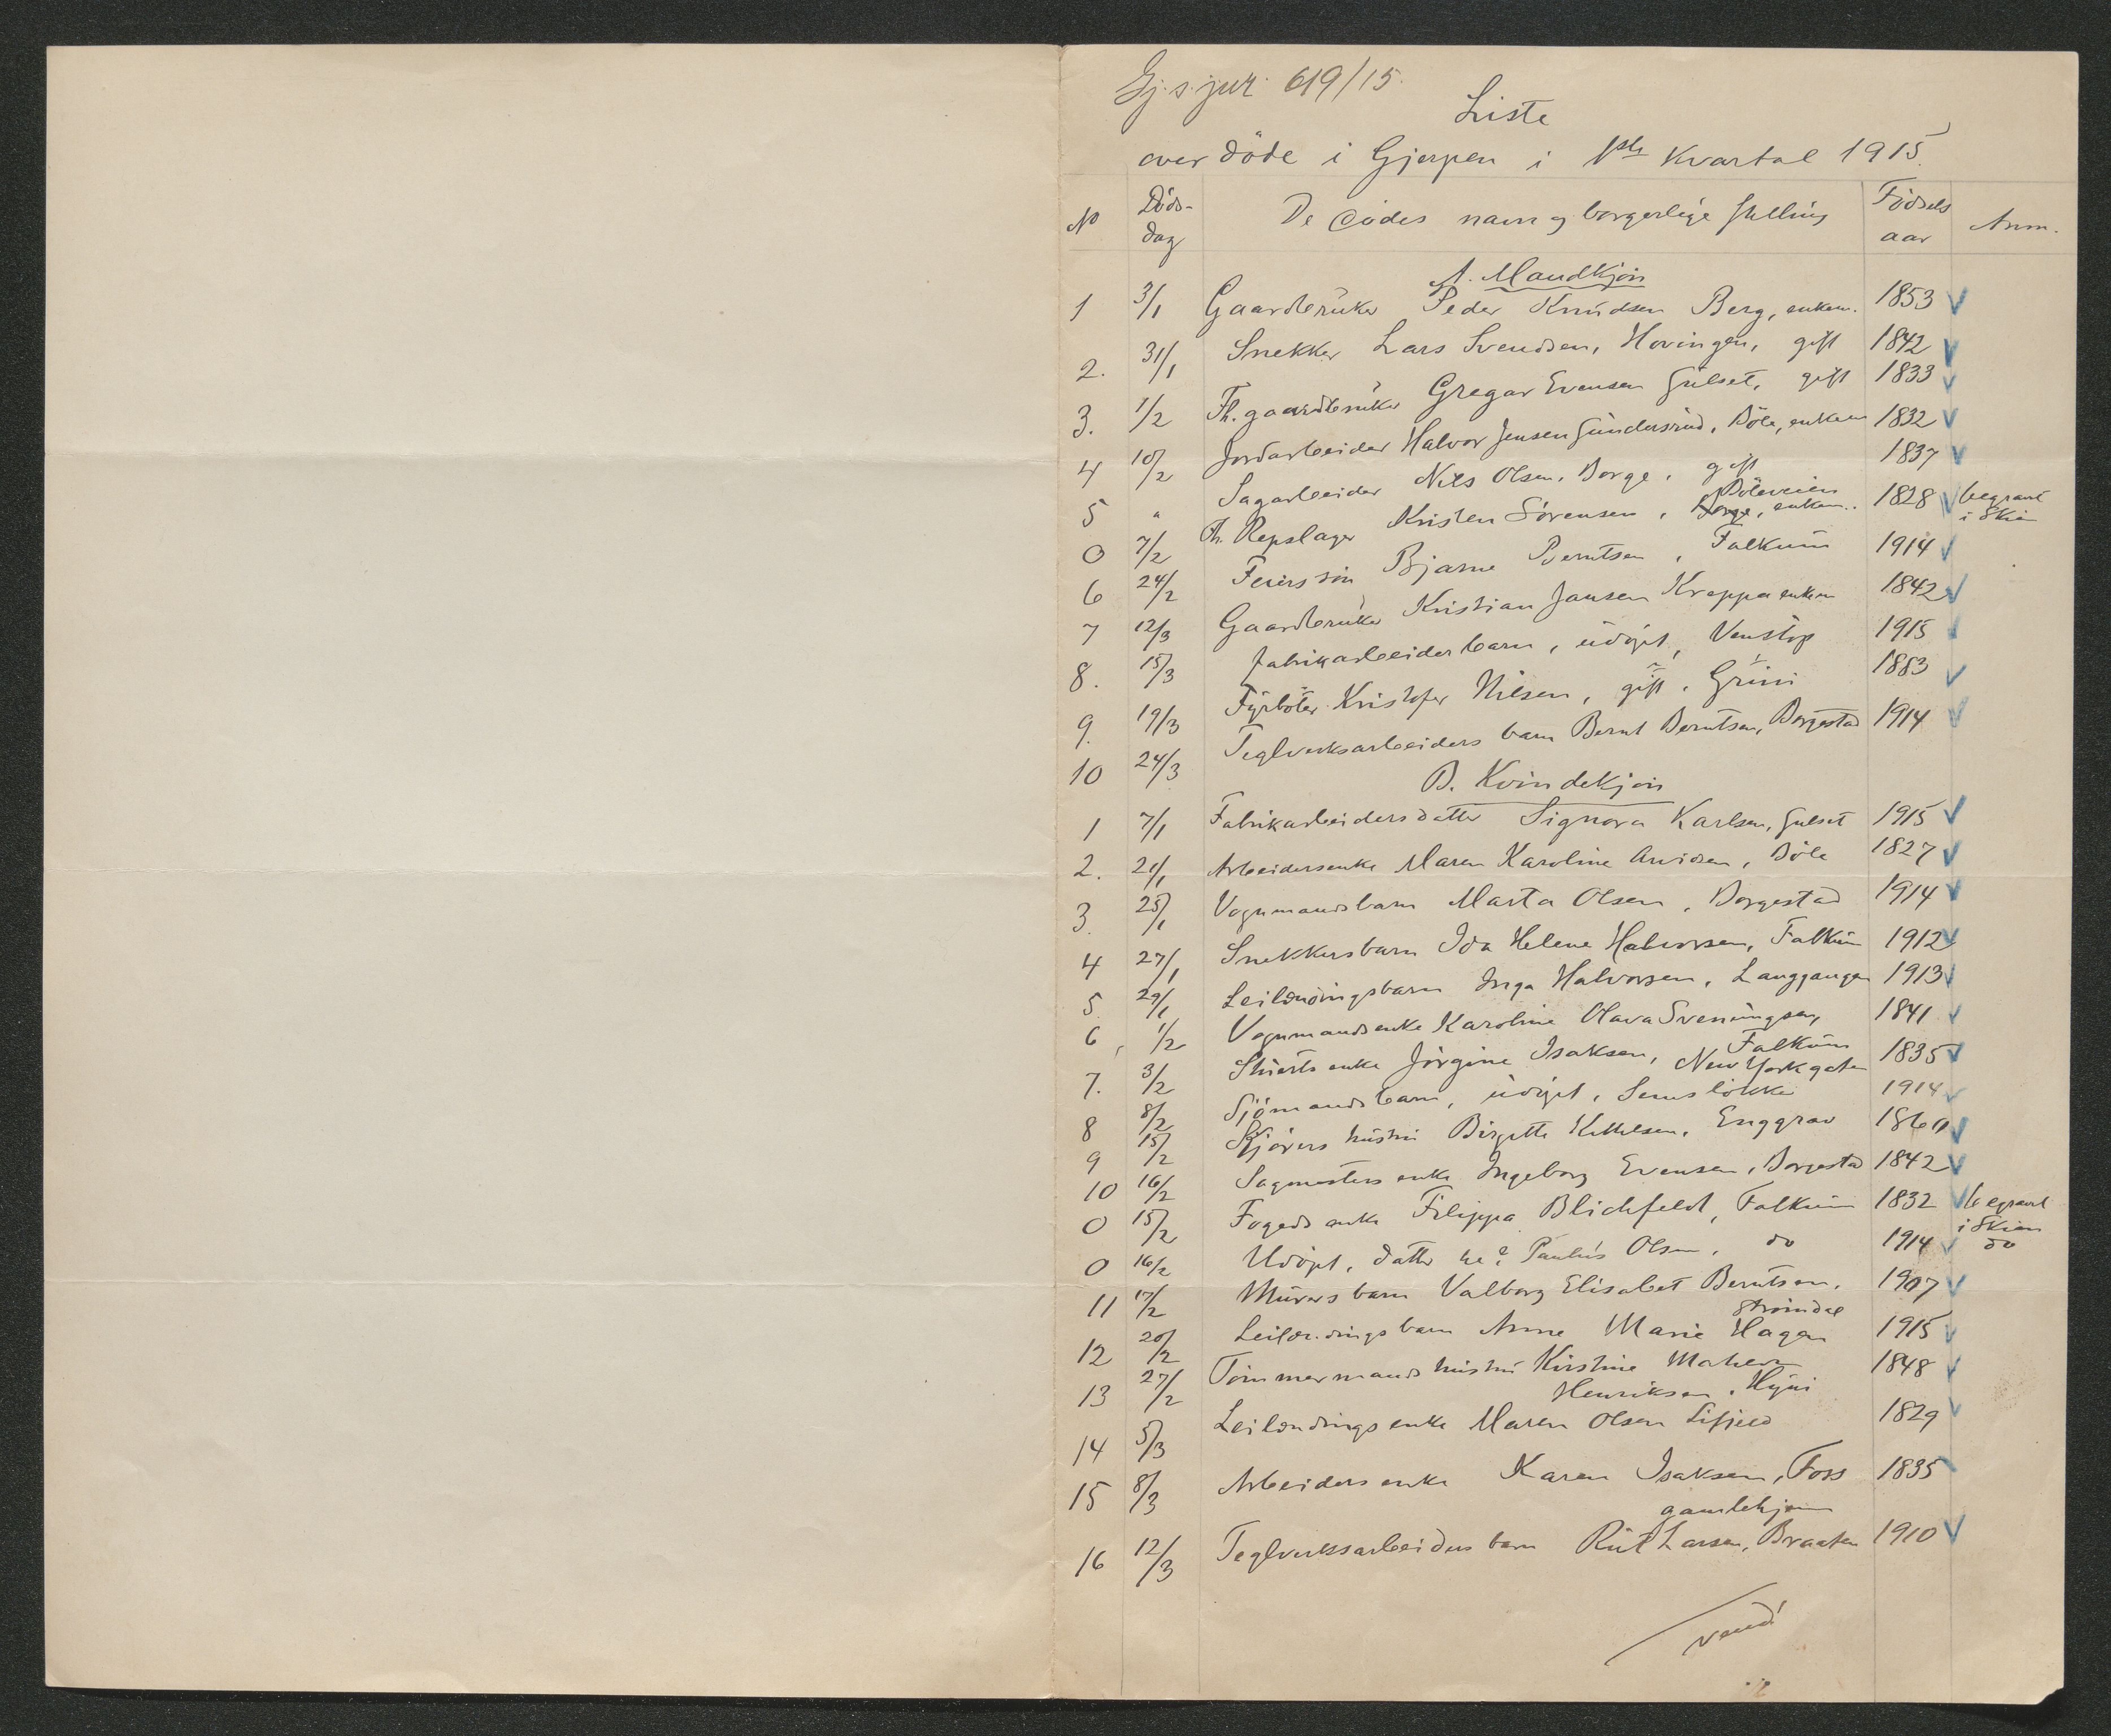 Gj. s. jur. 619/15.
Liste
over döde i Gjerpen i 1ste Kvartal 1915.
No Döds-dag De dödes navn og borgerlige stilling Födselsaar Anm.
A. Mandkjön
1 3/1 Gaardbruker Peder Knudsen Berg, enkem. 1853
2. 31/1 Snekker Lars Svendsen, Hovingen, gift 1842
3. 1/2 Fh. gaardbruker Gregar Evensen Gulset, gift 1833
4 10/2 Jordarbeider Halvor Jensen Gundersrud, Böle, enkem 1832
5 " Sagarbeider Nils Olsen, Borge, gift 1837
0 7/2 Fh. Repslager Kristen Sörensen, Borge, Böleveien enkem. 1828 begravet i Skien
6 24/2 Feiers sön Bjarne Berntsen, Falkum 1914
7 12/3 Gaardbruker Kristian Jansen Kreppa enkem 1842
8. 15/3 Fabrikarbeiderbarn, udöpt, Venstöp 1915
9. 19/3 Fyrböter Kristofer Nilsen, gift, Grini 1883
10 24/3 Teglverksarbeiders barn Bernt Berntsen, Borgestad 1914
B. Kvindekjön
1 7/1 Fabrikarbeidersdatter Signora Karlsen, Gulset 1915
2. 21/1 Arbeidersenke Maren Karoline Arvidsen, Böle 1827
3. 25/1 Vognmandsbarn Marta Olsen, Borgestad 1914
4 27/1 Snekkersbarn Ida Helene Halvorsen, Falkum 1912
5. 29/1 Leilændingsbarn Inga Halvorsen, Langgangen 1913
6, 1/2 Vognmandsenke Karoline Olava Sveningsen, 1841
Falkum
7. 3/2 Stuerts enke Jörgine Isaksen, New Yorkgaten 1835
8 8/2 Sjömandsbarn, udöpt, Semslökka 1914
9 15/2 Kjörers hustru Birgitte Kittelsen, Enggrav 1860
10 16/2 Sagmesters enke Ingeborg Evensen, Borgestad 1842
0 15/2 Fogeds enke Filippa Blichfeldt, Falkum 1832 begravet i Skien
0 16/2 Udöpt, datter av Paulus Olsen, do 1914 do
11 17/2 Murers barn Valborg Elisabet Berntsen, 1907
Strömdal
12 20/2 Leilændings barn Anne Marie Hagen 1915
13 27/2 Tömmermands hustru Kirstine Maren 1848
Henriksen, Hyni
14 5/3 Leilændings enke Maren Olsen Lifjeld 1829
15 8/3 Arbeiders enke Karen Isaksen, Foss 1835
gamlehjem
16 12/3 Teglverksarbeiders barn Rut Larsen, Braaten 1910
vend!